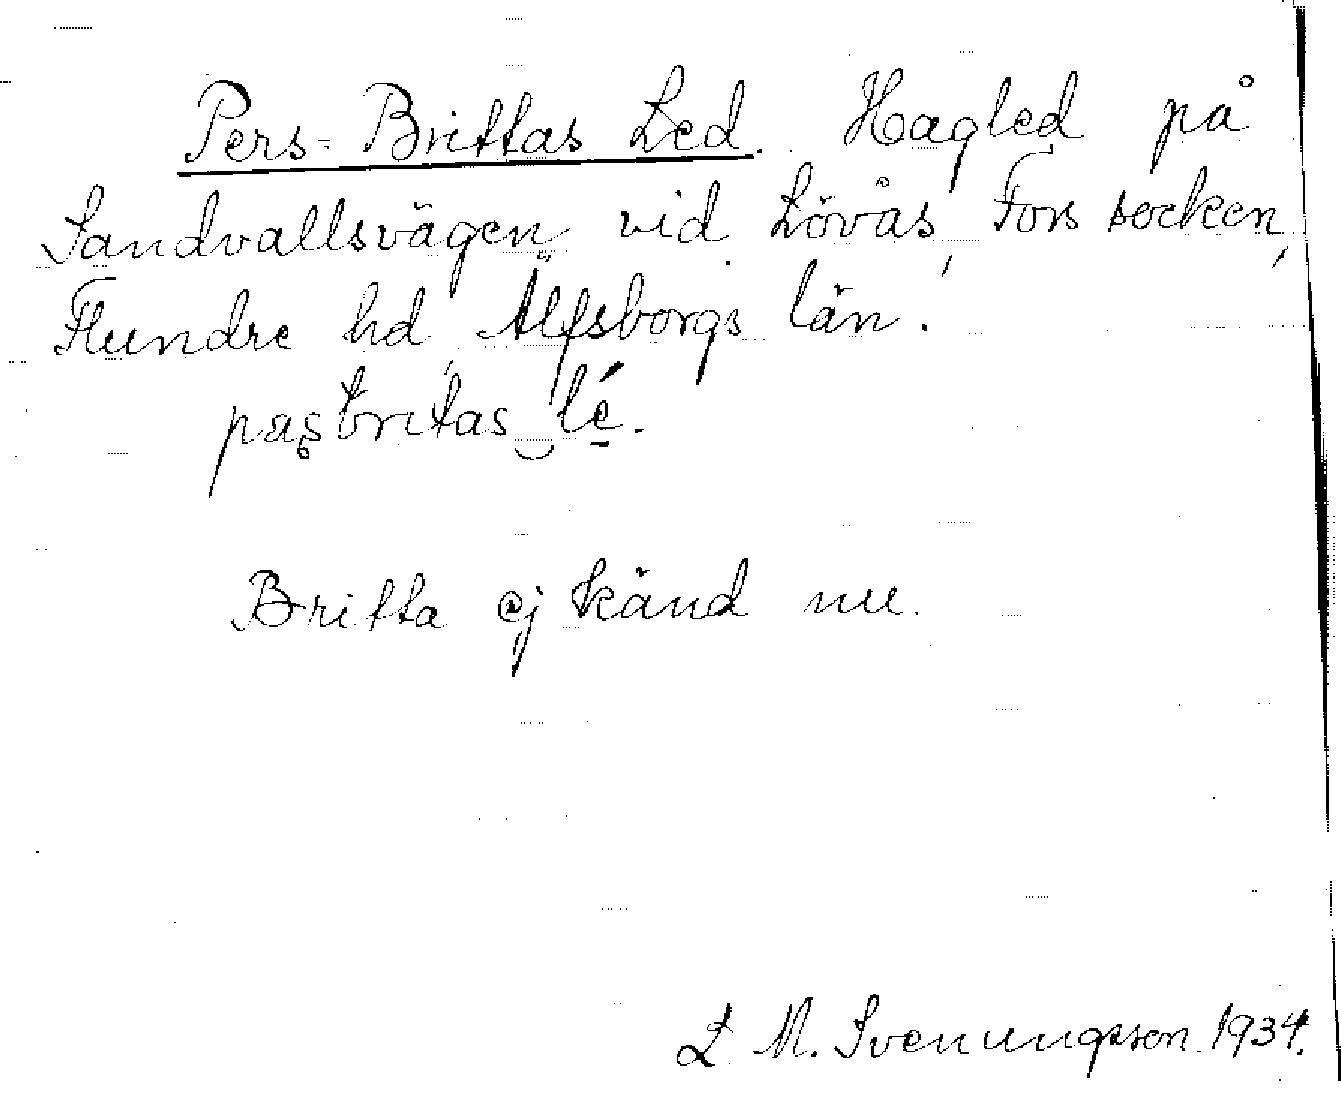 Pers-Brittas Led. Hagled på
Sandvallsvägen vid Lövås, Fors socken,
Flundre hd, Älfsborgs län.
pasbritas lé.
Britta ej känd nu.
L M. Svenungsson 1934.